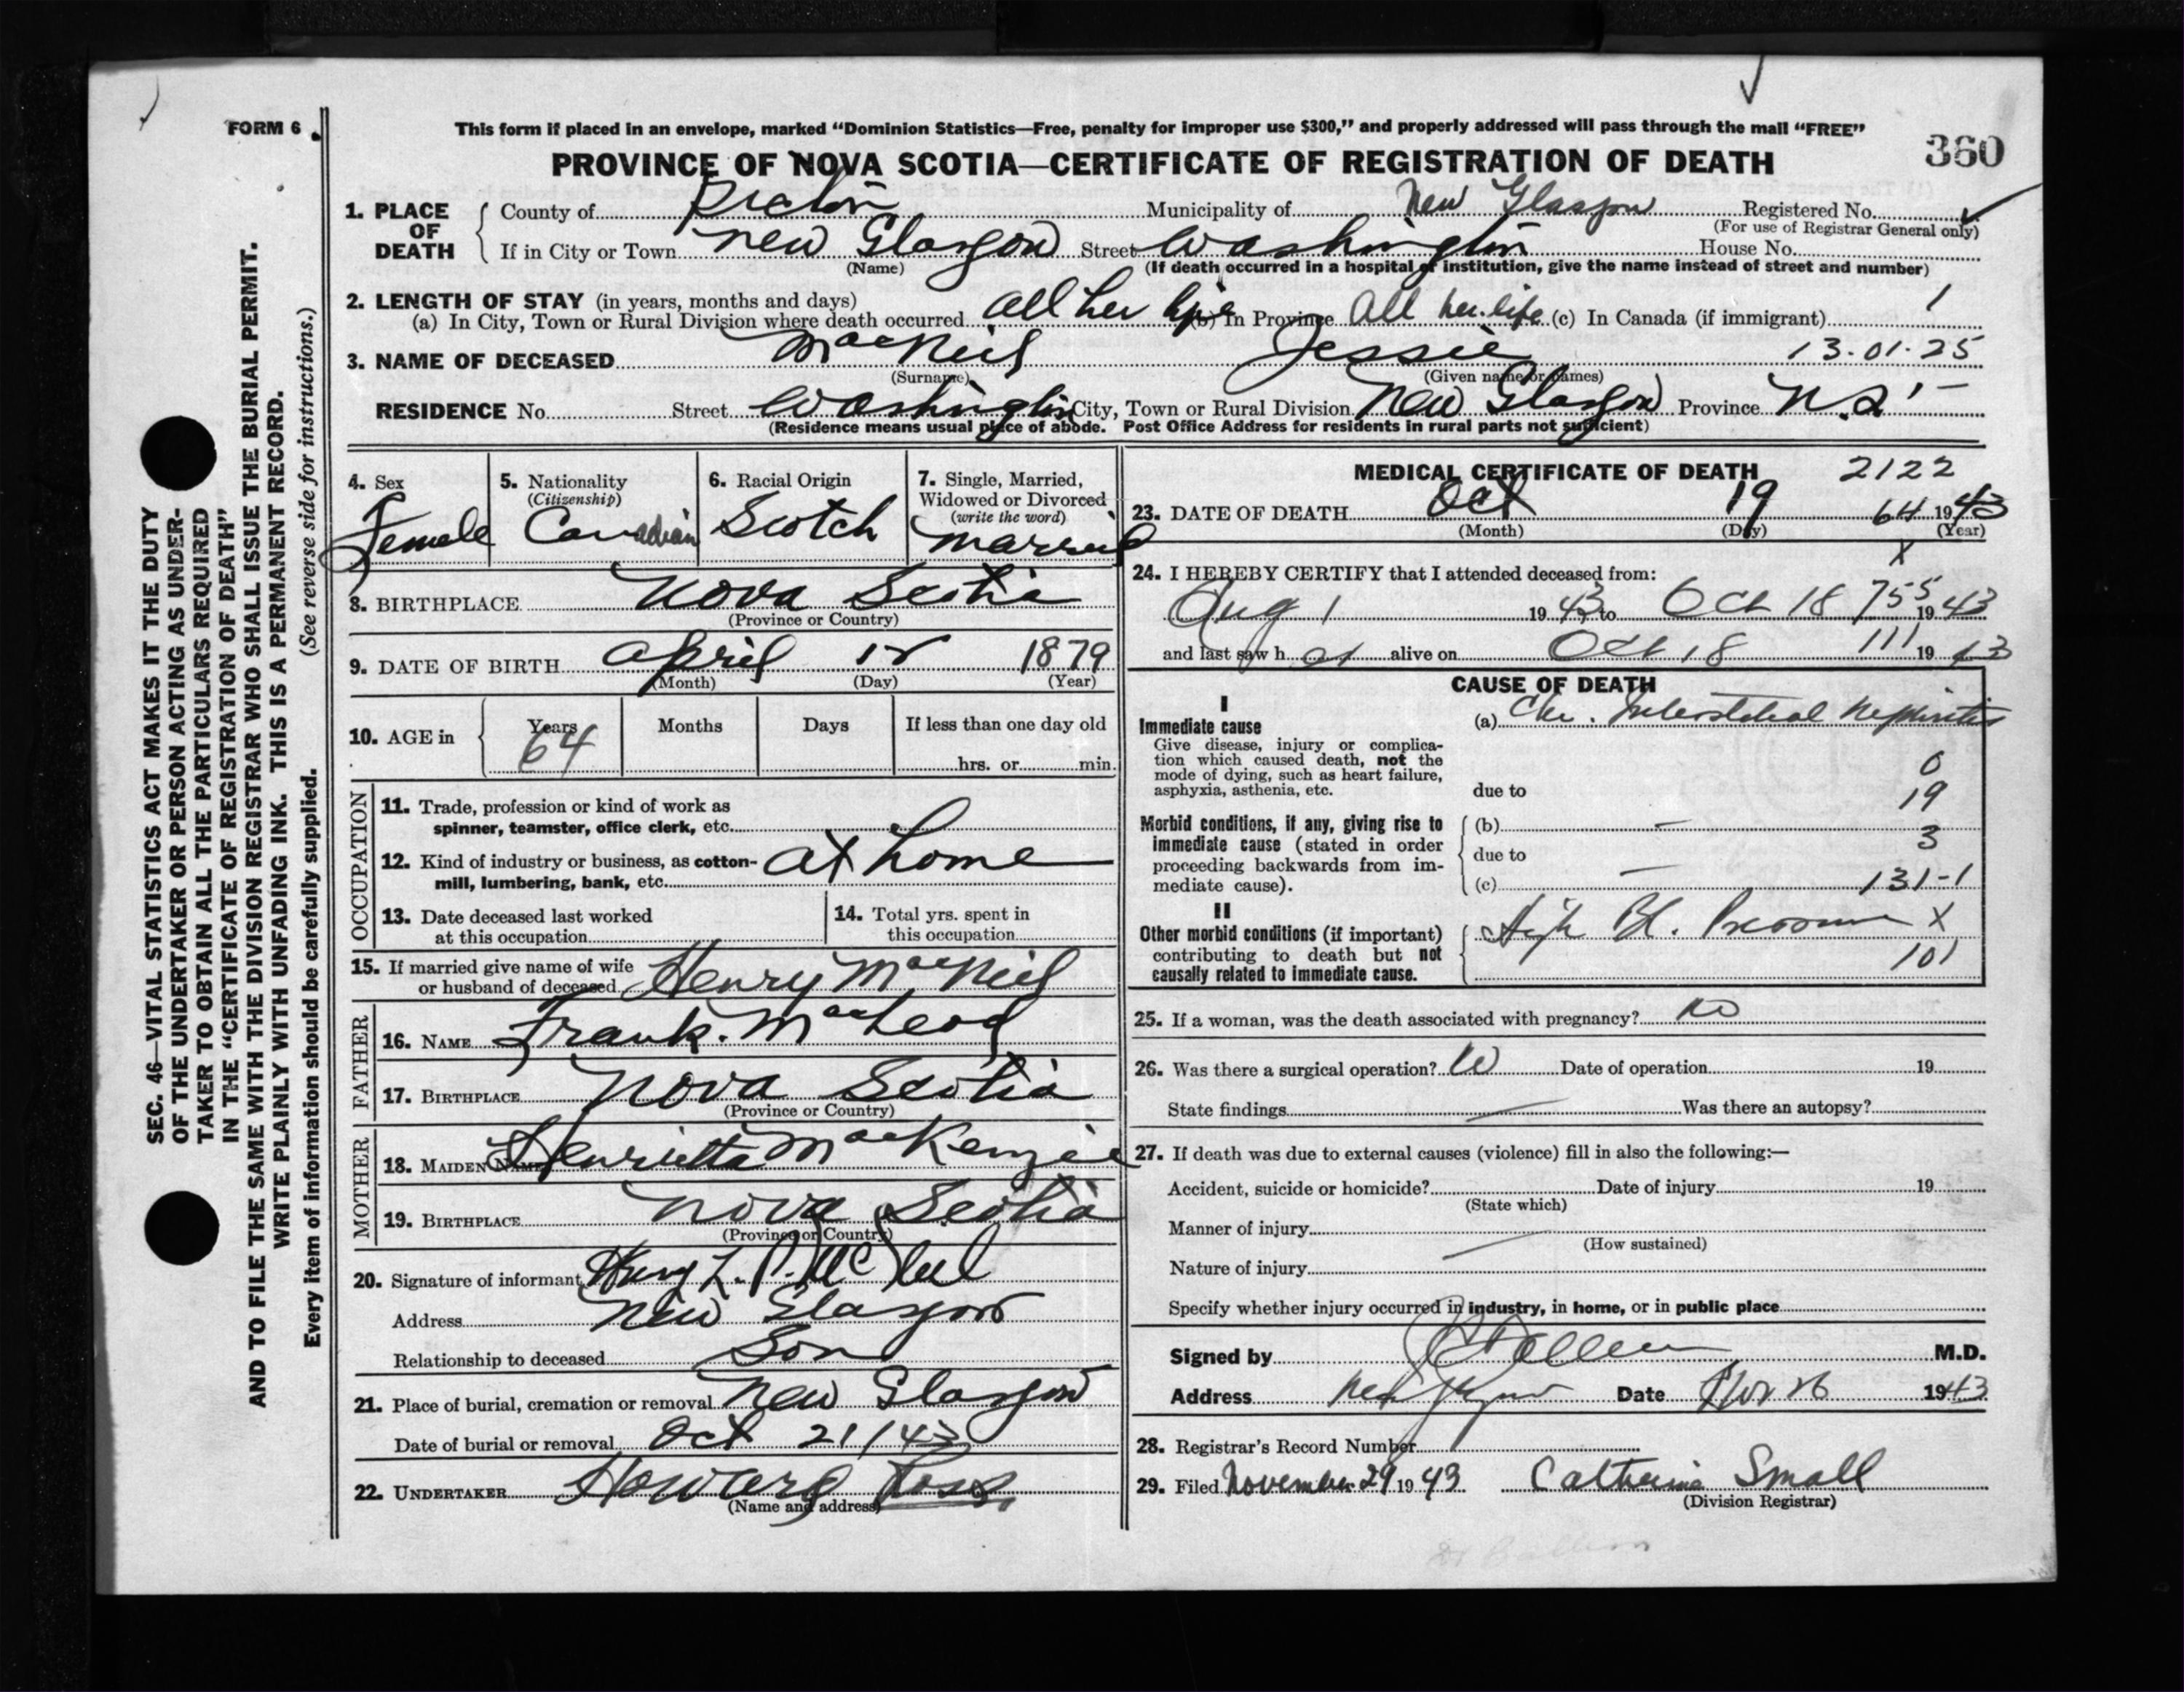 FORM 6
This form if placed in an envelope, marked “Dominion Statistics—Free, penalty for improper use $300,” and properly addressed will pass through the mail “FREE”
PROVINCE OF NOVA SCOTIA—CERTIFICATE OF REGISTRATION OF DEATH
360
1. PLACE OF DEATH County of Pictou Municipality of New Glasgow Registered No.
(For use of Registrar General only)
If in City or Town New Glasgow Street Washington House No.
(Name) (If death occurred in a hospital or institution, give the name instead of street and number)
2. LENGTH OF STAY (in years, months and days)
(a) In City, Town or Rural Division where death occurred all her life (b) In Province All her life (c) In Canada (if immigrant) 1
3. NAME OF DECEASED MacNeil Jessie 13-01-25
(Surname) (Given name or names)
RESIDENCE No. Street Washington City, Town or Rural Division New Glasgow Province N.S.
(Residence means usual place of abode. Post Office Address for residents in rural parts not sufficient)
4. Sex
Female
5. Nationality
(Citizenship)
Canadian
6. Racial Origin
Scotch
7. Single, Married,
Widowed or Divorced
(write the word)
Married
8. BIRTHPLACE Nova Scotia
(Province or Country)
9. DATE OF BIRTH April 12 1879
(Month) (Day) (Year)
10. AGE in Years Months Days If less than one day old
64 hrs. or min.
OCCUPATION
11. Trade, profession or kind of work as
spinner, teamster, office clerk, etc.
12. Kind of industry or business, as cotton-
mill, lumbering, bank, etc. at home
13. Date deceased last worked
at this occupation
14. Total yrs. spent in
this occupation
15. If married give name of wife
or husband of deceased Henry MacNeil
FATHER
16. NAME Frank MacLeod
17. BIRTHPLACE Nova Scotia
(Province or Country)
MOTHER
18. MAIDEN NAME Henrietta MacKenzie
19. BIRTHPLACE Nova Scotia
(Province or Country)
20. Signature of informant Henry L. P. McNeil
Address New Glasgow
Relationship to deceased Son
21. Place of burial, cremation or removal New Glasgow
Date of burial or removal Oct 21/43
22. UNDERTAKER Howard Ross
(Name and address)
MEDICAL CERTIFICATE OF DEATH 2122
23. DATE OF DEATH Oct 19 64 1943
(Month) (Day) (Year)
X
24. I HEREBY CERTIFY that I attended deceased from:
Aug 1 1943 to Oct 18 755 1943
and last saw h er alive on Oct 18 111 1943
CAUSE OF DEATH
I
Immediate cause
Give disease, injury or complica-
tion which caused death, not the
mode of dying, such as heart failure,
asphyxia, asthenia, etc.
(a) Chr. Interstitial Nephritis
0
due to 19
Morbid conditions, if any, giving rise to
immediate cause (stated in order
proceeding backwards from im-
mediate cause).
(b) —
due to — 3
(c) 131-1
II
Other morbid conditions (if important)
contributing to death but not
causally related to immediate cause.
High Bl. Pressure X
101
25. If a woman, was the death associated with pregnancy? No
26. Was there a surgical operation? No Date of operation 19
State findings Was there an autopsy?
27. If death was due to external causes (violence) fill in also the following:—
Accident, suicide or homicide? Date of injury 19
(State which)
Manner of injury
(How sustained)
Nature of injury
Specify whether injury occurred in industry, in home, or in public place
Signed by M.D.
Address New Glasgow Date Nov 26 1943
28. Registrar's Record Number
29. Filed November 29 1943 Catherine Small
(Division Registrar)
SEC. 46—VITAL STATISTICS ACT MAKES IT THE DUTY
OF THE UNDERTAKER OR PERSON ACTING AS UNDER-
TAKER TO OBTAIN ALL THE PARTICULARS REQUIRED
IN THE “CERTIFICATE OF REGISTRATION OF DEATH”
AND TO FILE THE SAME WITH THE DIVISION REGISTRAR WHO SHALL ISSUE THE BURIAL PERMIT.
WRITE PLAINLY WITH UNFADING INK. THIS IS A PERMANENT RECORD.
Every item of information should be carefully supplied. (See reverse side for instructions.)